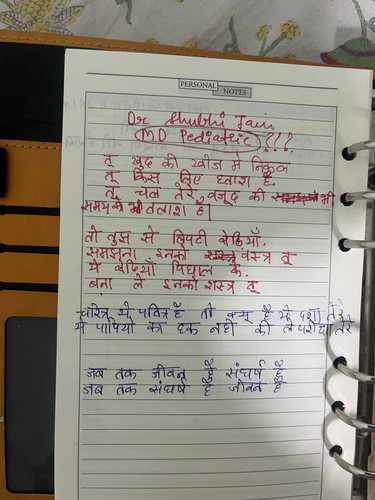 PERSONAL NOTES
Dr Shubhi Jain
MD Pediatric ???
तू खुद की खोज में निकल
तू किस लिए हताश है,
तू चल तेरे वजूद की
समय को भी तलाश है।
जो तुझ से लिपटी बेड़ियाँ,
समझना इनको वस्त्र तू
ये बेड़ियाँ पिघाल के,
बना ले इनको शस्त्र तू
चरित्र जो पवित्र है तो क्यूं है ये दशा तेरी
ये पापियो का हक नही की ले परीक्षा तेरी
जब तक जीवन है संघर्ष है
जब तक संघर्ष है जीवन है